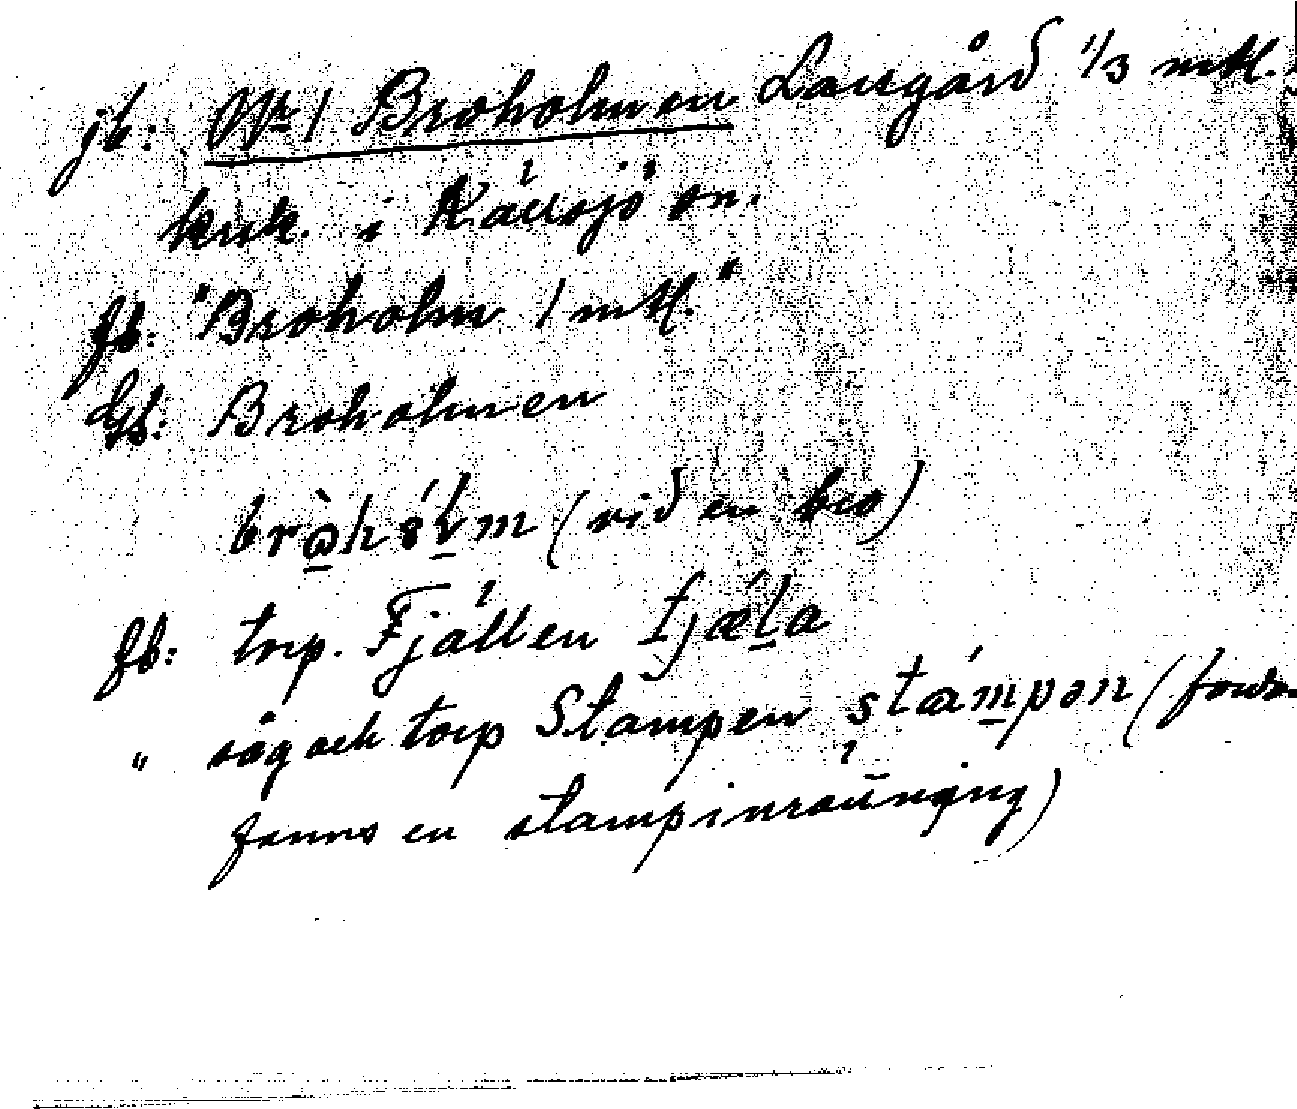 jb: No 1 Broholmen Laxgård 1/3 mtl.
krsk. i Källsjö sn.
fb: "Broholm 1 mtl."
Gb: Broholmen
(vid en bro)
fb: torp. Fjällen fjæla
" såg och torp Stampen stampən (
fanns en stampinrättning)